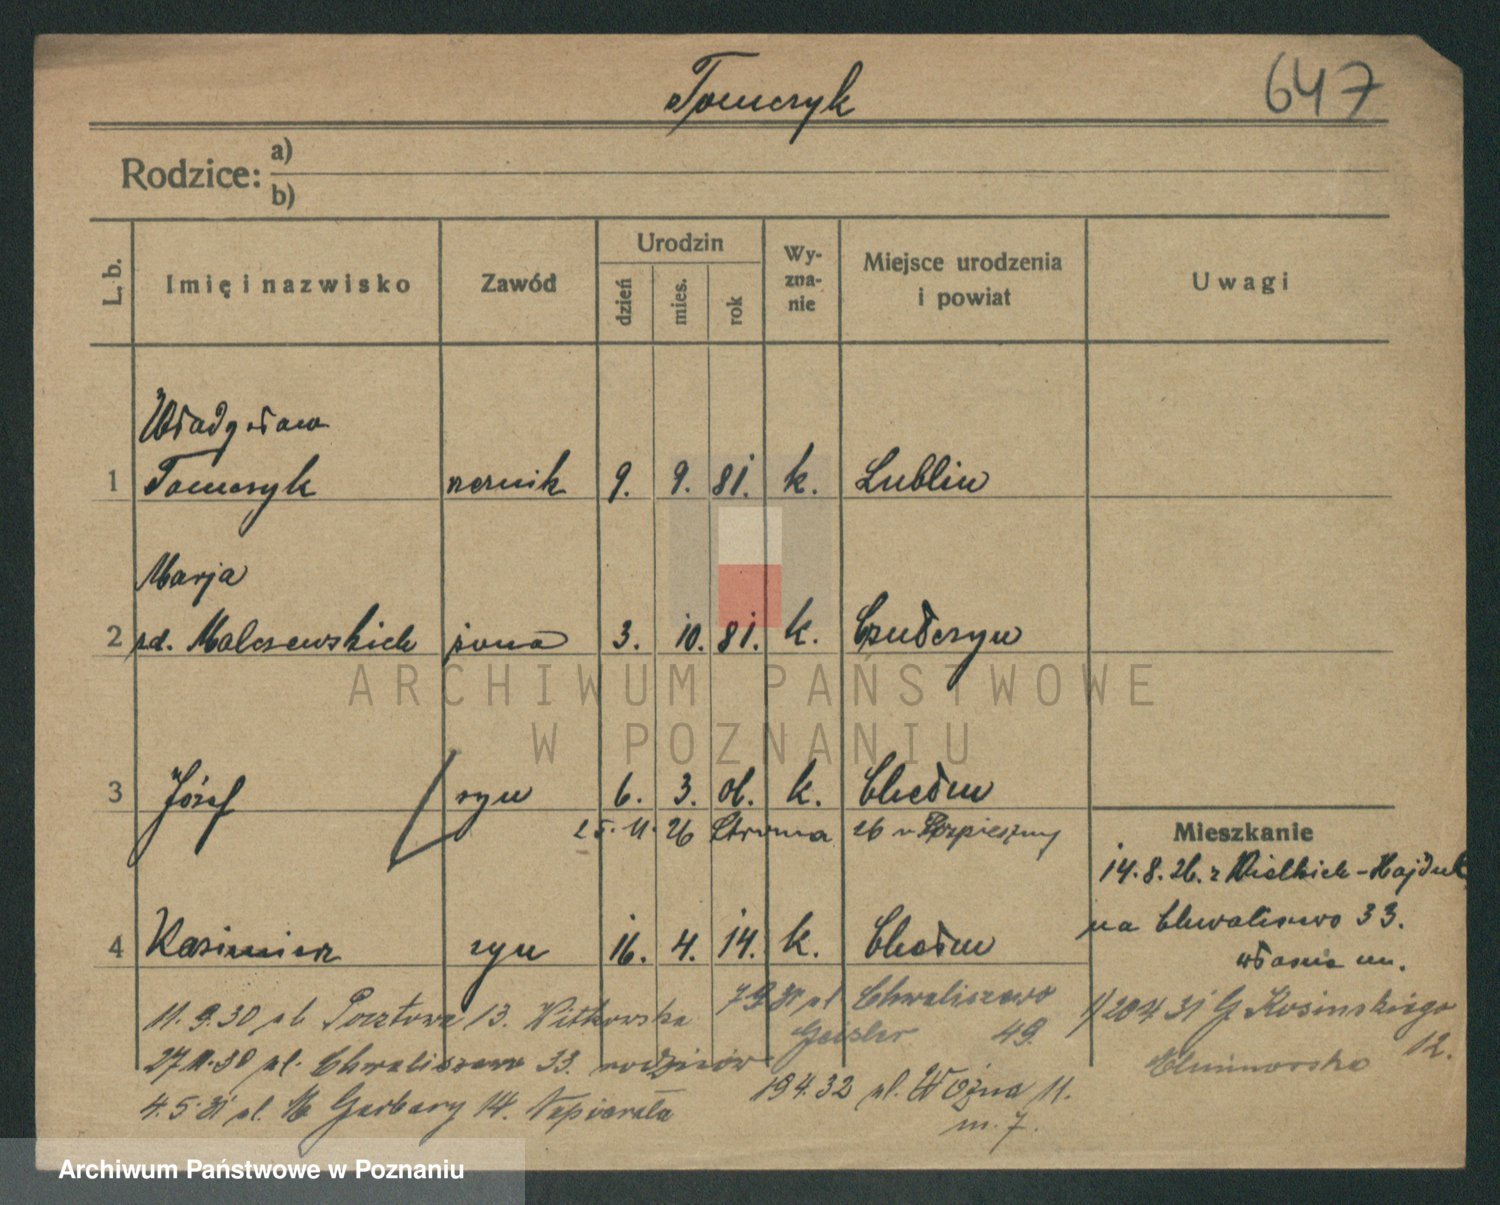 Tomczyk
647
Rodzice: a)
b)
L. b.
Imię i nazwisko
Zawód
Urodzin
dzień
mies.
rok
Wy-
zna-
nie
Miejsce urodzenia
i powiat
Uwagi
Władysław
1 Tomczyk rzeźnik 9. 9. 81. k. Lublin
Marja
2 zd. Malczewskich żona 3. 10. 81. k.
3 Józef syn 6. 3. 01. k. Chełm
25.11.26 Stroma 26 u
4 Kazimierz syn 16. 4. 14. k. Chełm
Mieszkanie
14.8.26. z Wielkich-Hajduk
na Chwaliszewo 33.
własne m.
11.9.30 pl. Pocztowa 13. Witkowska
27.11.30 pl. Chwaliszewo 33 rodziców
4.5.31 pl. W Garbary 14. Napierała
7.9.31 pl Chwaliszewo
Geisler 49.
19.4.32 pl. Woźna 11.
m. 7.
20.7.31 G. Kosinskiego
12.
ARCHIWUM PAŃSTWOWE
W POZNANIU
Archiwum Państwowe w Poznaniu